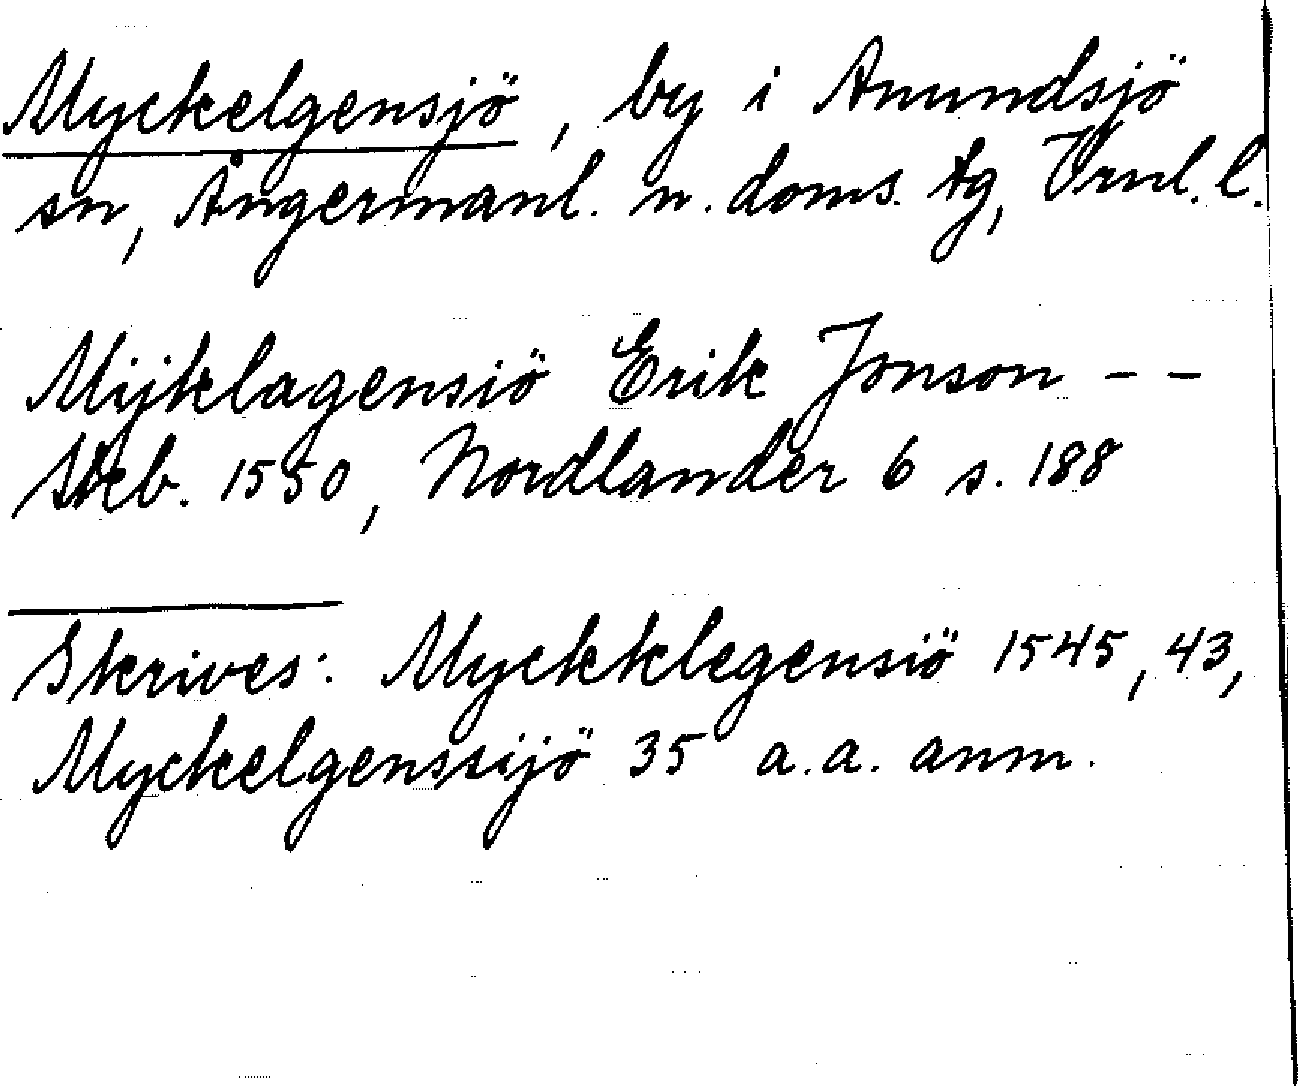 Myckelgensjö, by i Anundsjö
sn, Ångermanl. n. doms. tg, Vrnl. l.
Mijklagensiö Erik Jonson - -
Skeb. 1550, Nordlander 6 s. 188
Skrives: Myckklegensiö 1545, 43,
Myckelgenssijö 35 a.a. anm.